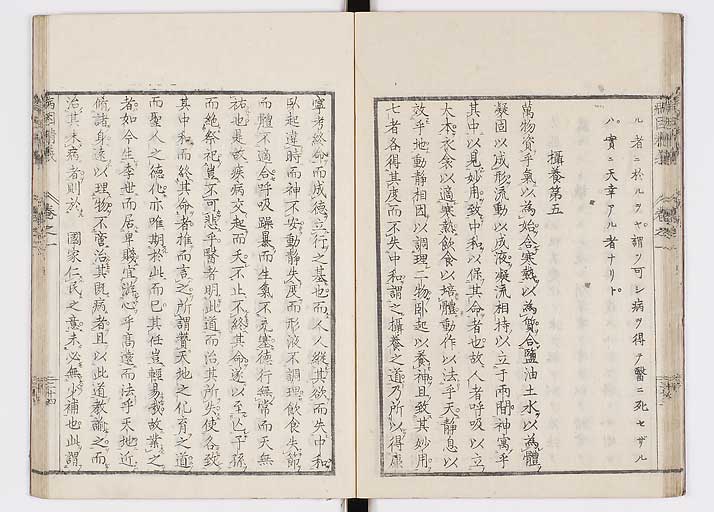 ル者ニ於ルヲヤ謂ツ可シ病ヲ得テ醫ニ死セザル
ハ實ニ天幸アル者ナリト
攝養第五
萬物資乎氣以為始合寒熱以為質合鹽油土水以為體
凝固以成形流動以成液凝流相持以立于兩間神寓乎
其中以見妙用致中和以保其命者也故人者呼吸以立
大本衣衾以適寒熱飲食以培體動作以法乎天靜息以
效乎地動靜相因以調理二物臥起以養神且致其妙用
七者各得其度而不失中和謂之攝養之道乃所以得康
寧考終命而成德立行之基也而人人縱其欲而失中和
臥起違時而神不安動靜失度而形液不調理飲食失節
而體不適合呼吸躁暴而生氣不充塞德行無常而天無
祐也是故疾病交起而天不止不終其命遂以至亡子孫
而絶祭祀豈不可悲乎醫者明此道而治其所失使各致
其中和而終其命者推而言之所謂贊天地之化育之道
而聖人之德化亦唯期於此而已其任豈輕易哉故業之
者如今生季世而居卑賤宜游心乎高遠而法乎天地近
脩諸身遠以理物不啻治其既病者且以此道教諭之而
治其未病者則於 國家仁民之意未必無少補也此謂
病因精義
卷之一